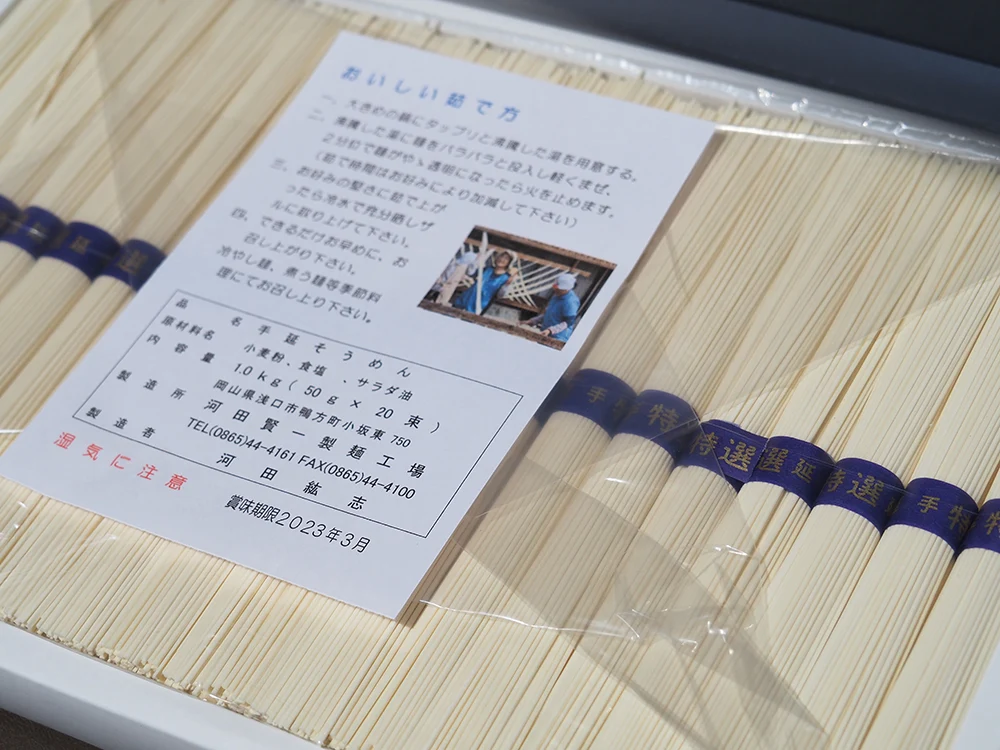 おいしい茹で方
一、大きめの鍋にタップリと沸騰した湯を用意する。
二、沸騰した湯に麺をパラパラと投入し軽くまぜ、
２分位で麺がやゝ透明になったら火を止めます。
（茹で時間はお好みにより加減して下さい）
三、お好みの堅さに茹で上が
ったら冷水で充分晒しザ
ルに取り上げて下さい。
四、できるだけお早めに、お
召し上がり下さい。
冷やし麺、煮う麺等季節料
理にてお召し上り下さい。
品名 手延そうめん
原材料名 小麦粉、食塩、サラダ油
内容量 1.0ｋｇ（50ｇ×20束）
製造所 岡山県浅口市鴨方町小坂東750
河田賢一製麺工場
TEL(0865)44-4161 FAX(0865)44-4100
製造者 河田紘志
湿気に注意
賞味期限２０２３年３月
延
選
手特
特
特選
選延
特選
手特
特